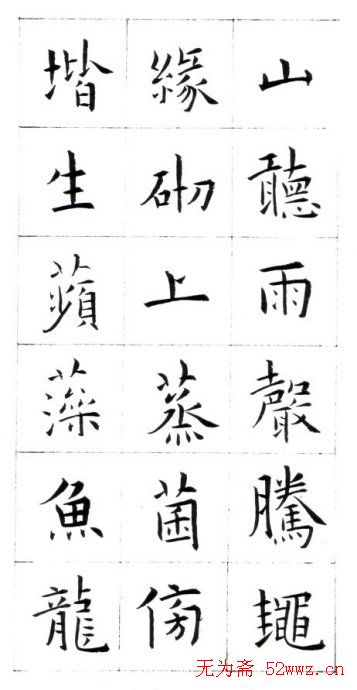 山聽雨聲騰
緣砌上蒸菌傍
堦生蘋藻魚龍
无为斋 52wwz.cn